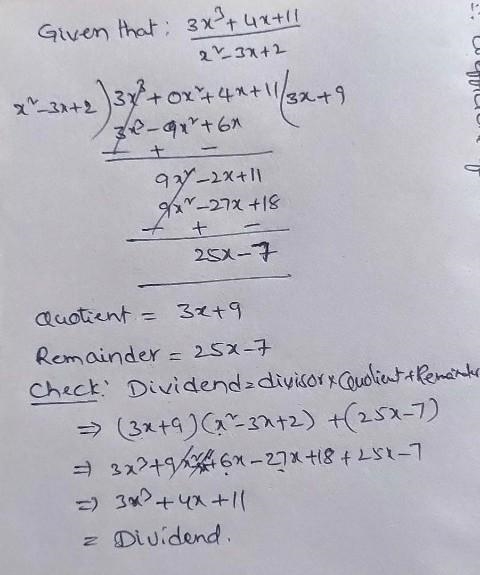 Given that: 3x³+4x+11
x²-3x+2
x²-3x+2)3x³+0x²+4x+11(3x+9
3x³-9x²+6x
- + -
9x²-2x+11
9x²-27x+18
- + -
25x-7
Quotient = 3x+9
Remainder = 25x-7
Check: Dividend=divisor×Quotient+Remainder
⇒ (3x+9)(x²-3x+2)+(25x-7)
⇒ 3x³+9x²-9x²+6x-27x+18+25x-7
⇒ 3x³+4x+11
= Dividend.